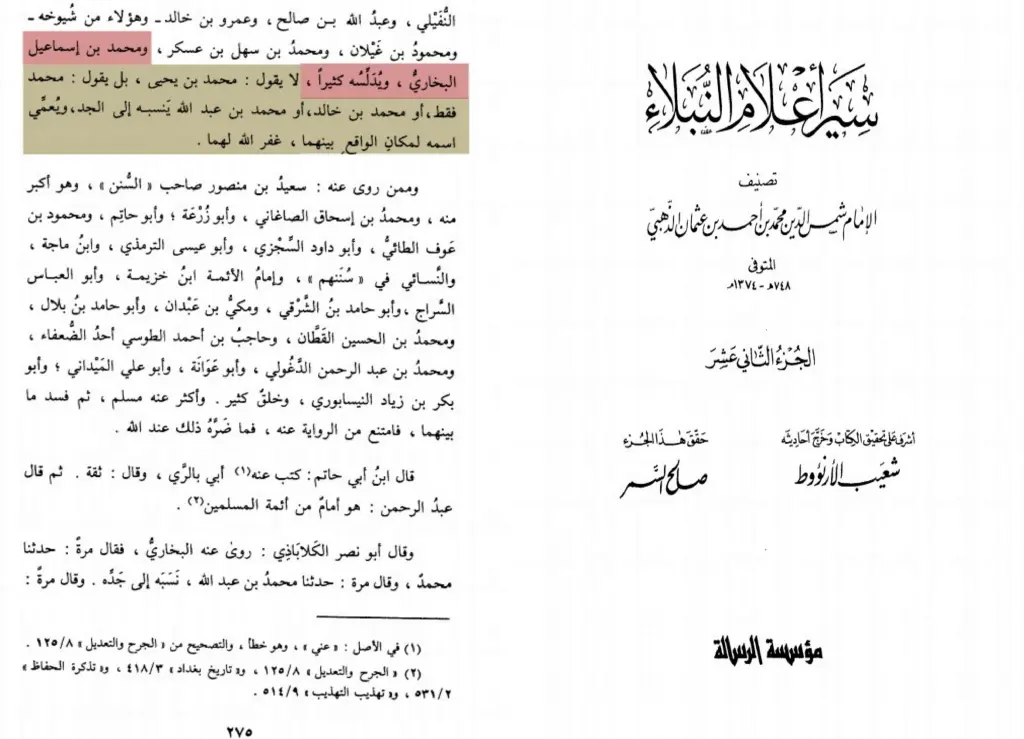 سير أعلام النبلاء
تصنيف
الإمام شمس الدين محمد بن أحمد بن عثمان الذهبي
المتوفى
٧٤٨هـ - ١٣٧٤م
الجزء الثاني عشر
أشرف على تحقيق الكتاب وخرج أحاديثه
شعيب الأرنؤوط
حقق هذا الجزء
صالح السمر
مؤسسة الرسالة
النُّفَيْلي ، وعبدُ الله بن صالح ، وعمرو بن خالد ـ وهؤلاء من شُيوخه ـ
ومحمودُ بن غَيْلان ، ومحمدُ بن سهل بن عسكر ، ومحمد بن إسماعيل
البخاريُّ ، ويُدَلِّسُه كثيراً ، لا يقول : محمد بن يحيى ، بل يقول : محمد
فقط، أو محمد بن خالد، أو محمد بن عبد الله يَنسبه إلى الجد، ويُعمِّي
اسمه لمكانِ الواقعِ بينهما ، غفر الله لهما .
وممن روى عنه : سعيدُ بن منصور صاحب « السُّنن » ، وهو أكبر
منه ، ومحمدُ بن إسحاق الصاغاني ، وأبو زُرْعَة ؛ وأبو حاتِم ، ومحمود بن
عَوف الطائيُّ ، وأبو داود السِّجْزي ، وأبو عيسى الترمذي ، وابنُ ماجة ،
والنَّسائي في « سُنَنهم » ، وإمامُ الأئمة ابنُ خزيمة ، وأبو العباس
السَّراج ، وأبو حامد بنُ الشَّرْقي ، ومكيُّ بن عَبْدان ، وأبو حامد بنُ بلال ،
ومحمدُ بن الحسين القَطَّان ، وحاجبُ بن أحمد الطوسي أحدُ الضُّعفاء ،
ومحمدُ بن عبد الرحمن الدَّغُولي ، وأبو عَوَانَة ، وأبو علي المَيْداني ؛ وأبو
بكر بن زياد النيسابوري ، وخلقٌ كثير . وأكثر عنه مسلم ، ثم فسد ما
بينهما ، فامتنع من الرواية عنه ، فما ضَرَّهُ ذلك عند الله .
قال ابنُ أبي حاتم : كتب عنه(١) أبي بالرَّي ، وقال : ثقة . ثم قال
عبدُ الرحمن : هو أمامٌ من أئمة المسلمين(٢) .
وقال أبو نصر الكَلاَبَاذِي : روىٰ عنه البخاريُّ ، فقال مرةً : حدثنا
محمدٌ ، وقال مرة : حدثنا محمدُ بن عبد الله ، نَسَبَه إلى جَدِّه . وقال مرةً :
(١) في الأصل : « عني » ، وهو خطأ ، والتصحيح من « الجرح والتعديل » ١٢٥/٨ .
(٢) « الجرح والتعديل » ١٢٥/٨ ، و« تاريخ بغداد » ٤١٨/٣ ، و« تذكرة الحفاظ »
٥٣١/٢ ، و« تهذيب التهذيب » ٥١٤/٩ .
٢٧٥